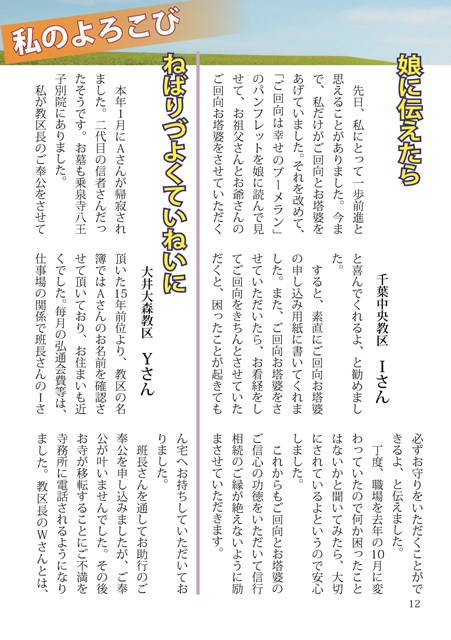 私のよろこび
娘に伝えたら
千葉中央教区　Ｉさん
　先日、私にとって一歩前進と
思えることがありました。今ま
で、私だけがご回向とお塔婆を
あげていました。それを改めて、
「ご回向は幸せのブーメラン」
のパンフレットを娘に読んで見
せて、お祖父さんとお爺さんの
ご回向お塔婆をさせていただく
と喜んでくれるよ、と勧めまし
た。
　すると、素直にご回向お塔婆
の申し込み用紙に書いてくれま
した。また、ご回向お塔婆をさ
せていただいたら、お看経をし
てご回向をきちんとさせていた
だくと、困ったことが起きても
必ずお守りをいただくことがで
きるよ、と伝えました。
　丁度、職場を去年の10月に変
わっていたので何か困ったこと
はないかと聞いてみたら、大切
にされているよというので安心
しました。
　これからもご回向とお塔婆の
ご信心の功徳をいただいて信行
相続のご縁が絶えないように励
まさせていただきます。
ねばりづよくていねいに
大井大森教区　Ｙさん
　本年１月にＡさんが帰寂され
ました。二代目の信者さんだっ
たそうです。お墓も乗泉寺八王
子別院にありました。
　私が教区長のご奉公をさせて
頂いた15年前位より、教区の名
簿ではＡさんのお名前を確認さ
せて頂いており、お住まいも近
くでした。毎月の弘通会費等は、
仕事場の関係で班長さんのＩさ
ん宅へお持ちしていただいてお
りました。
　班長さんを通してお助行のご
奉公を申し込みましたが、ご奉
公が叶いませんでした。その後
お寺が移転することにご不満を
寺務所に電話されるようになり
ました。教区長のＷさんとは、
12